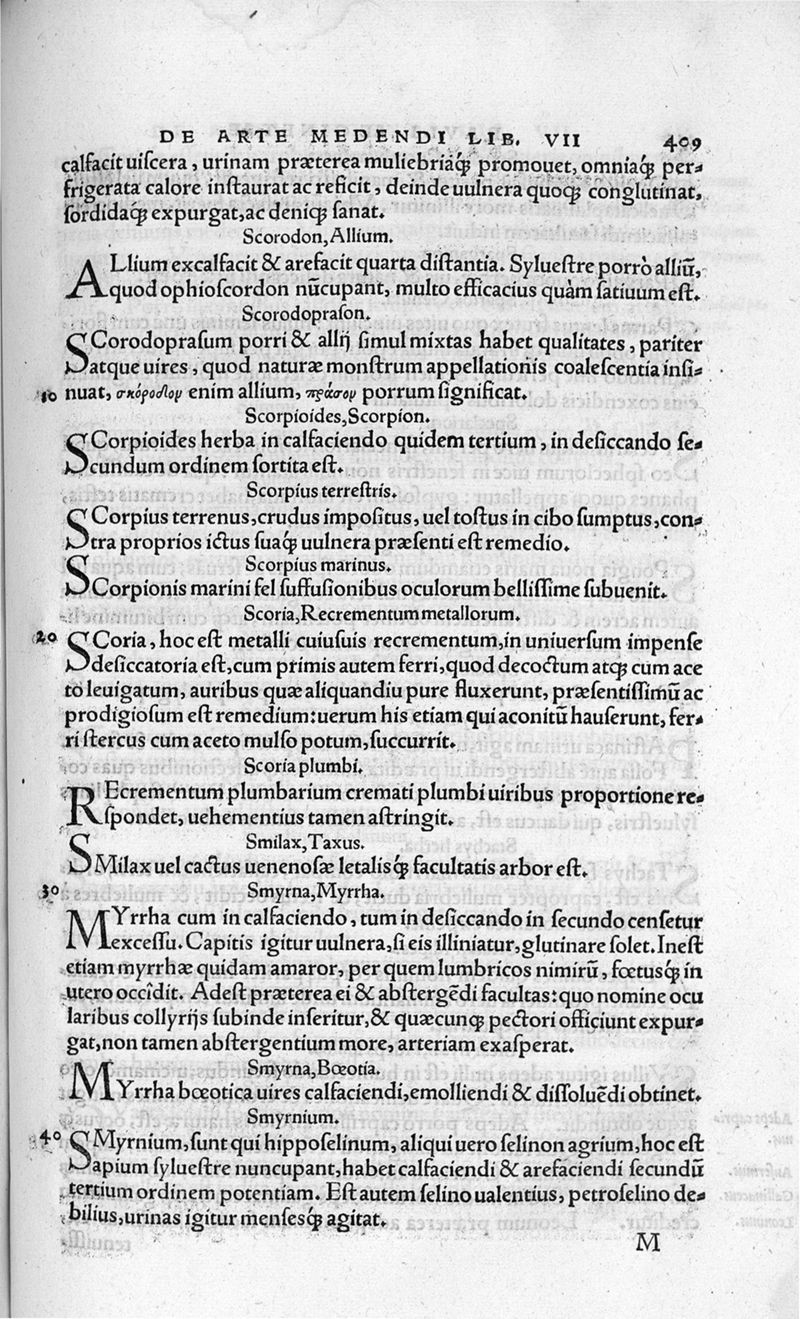 DE ARTE MEDENDI LIB. VII 409
calfacit uiſcera, urinam præterea muliebriaq́; promouet, omniaq́; per-
frigerata calore inſtaurat ac reficit, deinde uulnera quoq; conglutinat,
ſordidaq́; expurgat, ac deniq; ſanat.
Scorodon, Allium.
ALlium excalfacit & arefacit quarta diſtantia. Sylueſtre porrò alliũ,
quod ophioſcordon nũcupant, multo efficacius quàm ſatiuum eſt.
Scorodopraſon.
SCorodopraſum porri & allij ſimul mixtas habet qualitates, pariter
atque uires, quod naturæ monſtrum appellationis coaleſcentia inſi-
10 nuat, σκόροδον enim allium, πράσον porrum ſignificat.
Scorpioides, Scorpion.
SCorpioides herba in calfaciendo quidem tertium, in deſiccando ſe-
cundum ordinem ſortita eſt.
Scorpius terreſtris.
SCorpius terrenus, crudus impoſitus, uel toſtus in cibo ſumptus, con-
tra proprios ictus ſuaq́; uulnera præſenti eſt remedio.
Scorpius marinus.
SCorpionis marini fel ſuffuſionibus oculorum belliſſime ſubuenit.
Scoria, Recrementum metallorum.
20 SCoria, hoc eſt metalli cuiuſuis recrementum, in uniuerſum impenſe
deſiccatoria eſt, cum primis autem ferri, quod decoctum atq; cum ace
to leuigatum, auribus quæ aliquandiu pure fluxerunt, præſentiſſimũ ac
prodigioſum eſt remedium: uerum his etiam qui aconitũ hauſerunt, fer-
ri ſtercus cum aceto mulſo potum, ſuccurrit.
Scoria plumbi.
REcrementum plumbarium cremati plumbi uiribus proportione re-
ſpondet, uehementius tamen aſtringit.
Smilax, Taxus.
SMilax uel cactus uenenoſæ letalisq́; facultatis arbor eſt.
30 Smyrna, Myrrha.
MYrrha cum in calfaciendo, tum in deſiccando in ſecundo cenſetur
exceſſu. Capitis igitur uulnera, ſi eis illiniatur, glutinare ſolet. Ineſt
etiam myrrhæ quidam amaror, per quem lumbricos nimirũ, fœtusq́; in
utero occîdit. Adeſt præterea ei & abſtergẽdi facultas: quo nomine ocu
laribus collyrijs ſubinde inſeritur, & quæcunq; pectori officiunt expur-
gat, non tamen abſtergentium more, arteriam exaſperat.
Smyrna, Bœotia.
MYrrha bœotica uires calfaciendi, emolliendi & diſſoluẽdi obtinet.
Smyrnium.
40 SMyrnium, ſunt qui hippoſelinum, aliqui uero ſelinon agrium, hoc eſt
apium ſylueſtre nuncupant, habet calfaciendi & arefaciendi ſecundũ
tertium ordinem potentiam. Eſt autem ſelino ualentius, petroſelino de-
bilius, urinas igitur menſesq́; agitat.
M